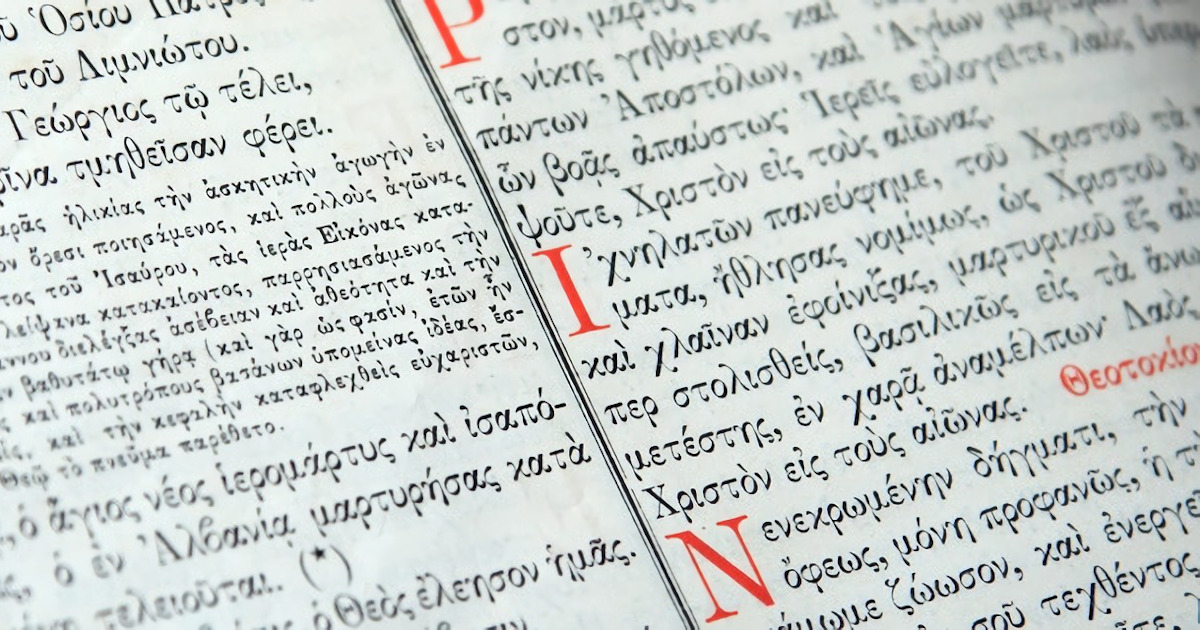 Ὁσίου Πατρὸς
τοῦ Λιμνιώτου.
Γεώργιος τῷ τέλει,
τμηθεῖσαν φέρει.
ἡλικίας τὴν ἀσκητικὴν ἀγωγὴν ἐν
ὄρεσι ποιησάμενος, καὶ πολλοὺς ἀγῶνας
τοῦ Ἰσαύρου, τὰς ἱερὰς Εἰκόνας κατα-
λείψανα κατακαίοντος, παρρησιασάμενος τὴν
διελέγξας ἀσέβειαν καὶ ἀθεότητα καὶ τὴν
βαθυτάτῳ γήρᾳ (καὶ γὰρ ὥς φασίν, ἐτῶν ἦν
καὶ πολυτρόπους βασάνων ὑπομείνας ἰδέας, ἔσ-
καὶ τὴν κεφαλὴν καταφλεχθεὶς εὐχαριστῶν,
Θεῷ τὸ πνεῦμα παρέθετο.
ὁ ἅγιος νέος ἱερομάρτυς καὶ ἰσαπό-
ὁ ἐν Ἀλβανίᾳ μαρτυρήσας κατὰ
τελειοῦται. (*)
ὁ Θεὸς ἐλέησον ἡμᾶς.
Ρ
στον,
τῆς νίκης γηθόμενος καὶ
πάντων Ἀποστόλων, καὶ Ἁγίων
ὧν βοᾷς ἀπαύστως· Ἱερεῖς εὐλογεῖτε, λαὸς
ψοῦτε, Χριστὸν εἰς τοὺς αἰῶνας.
Ἰχνηλατῶν πανεύφημε, τοῦ Χριστοῦ τὰ
ματα, ἤθλησας νομίμως, ὡς Χριστοῦ
καὶ χλαῖναν ἐφοίνιξας, μαρτυρικοῦ ἐξ
περ στολισθείς, βασιλικῶς εἰς τὰ ἄνω
μετέστης, ἐν χαρᾷ ἀναμέλπων· Λαὸς
Χριστὸν εἰς τοὺς αἰῶνας. Θεοτοκίον
Νενεκρωμένην δήγματι, τὴν
ὄφεως, μόνη προφανῶς, ἡ
ζώωσον, καὶ
σοῦ τεχθέντος